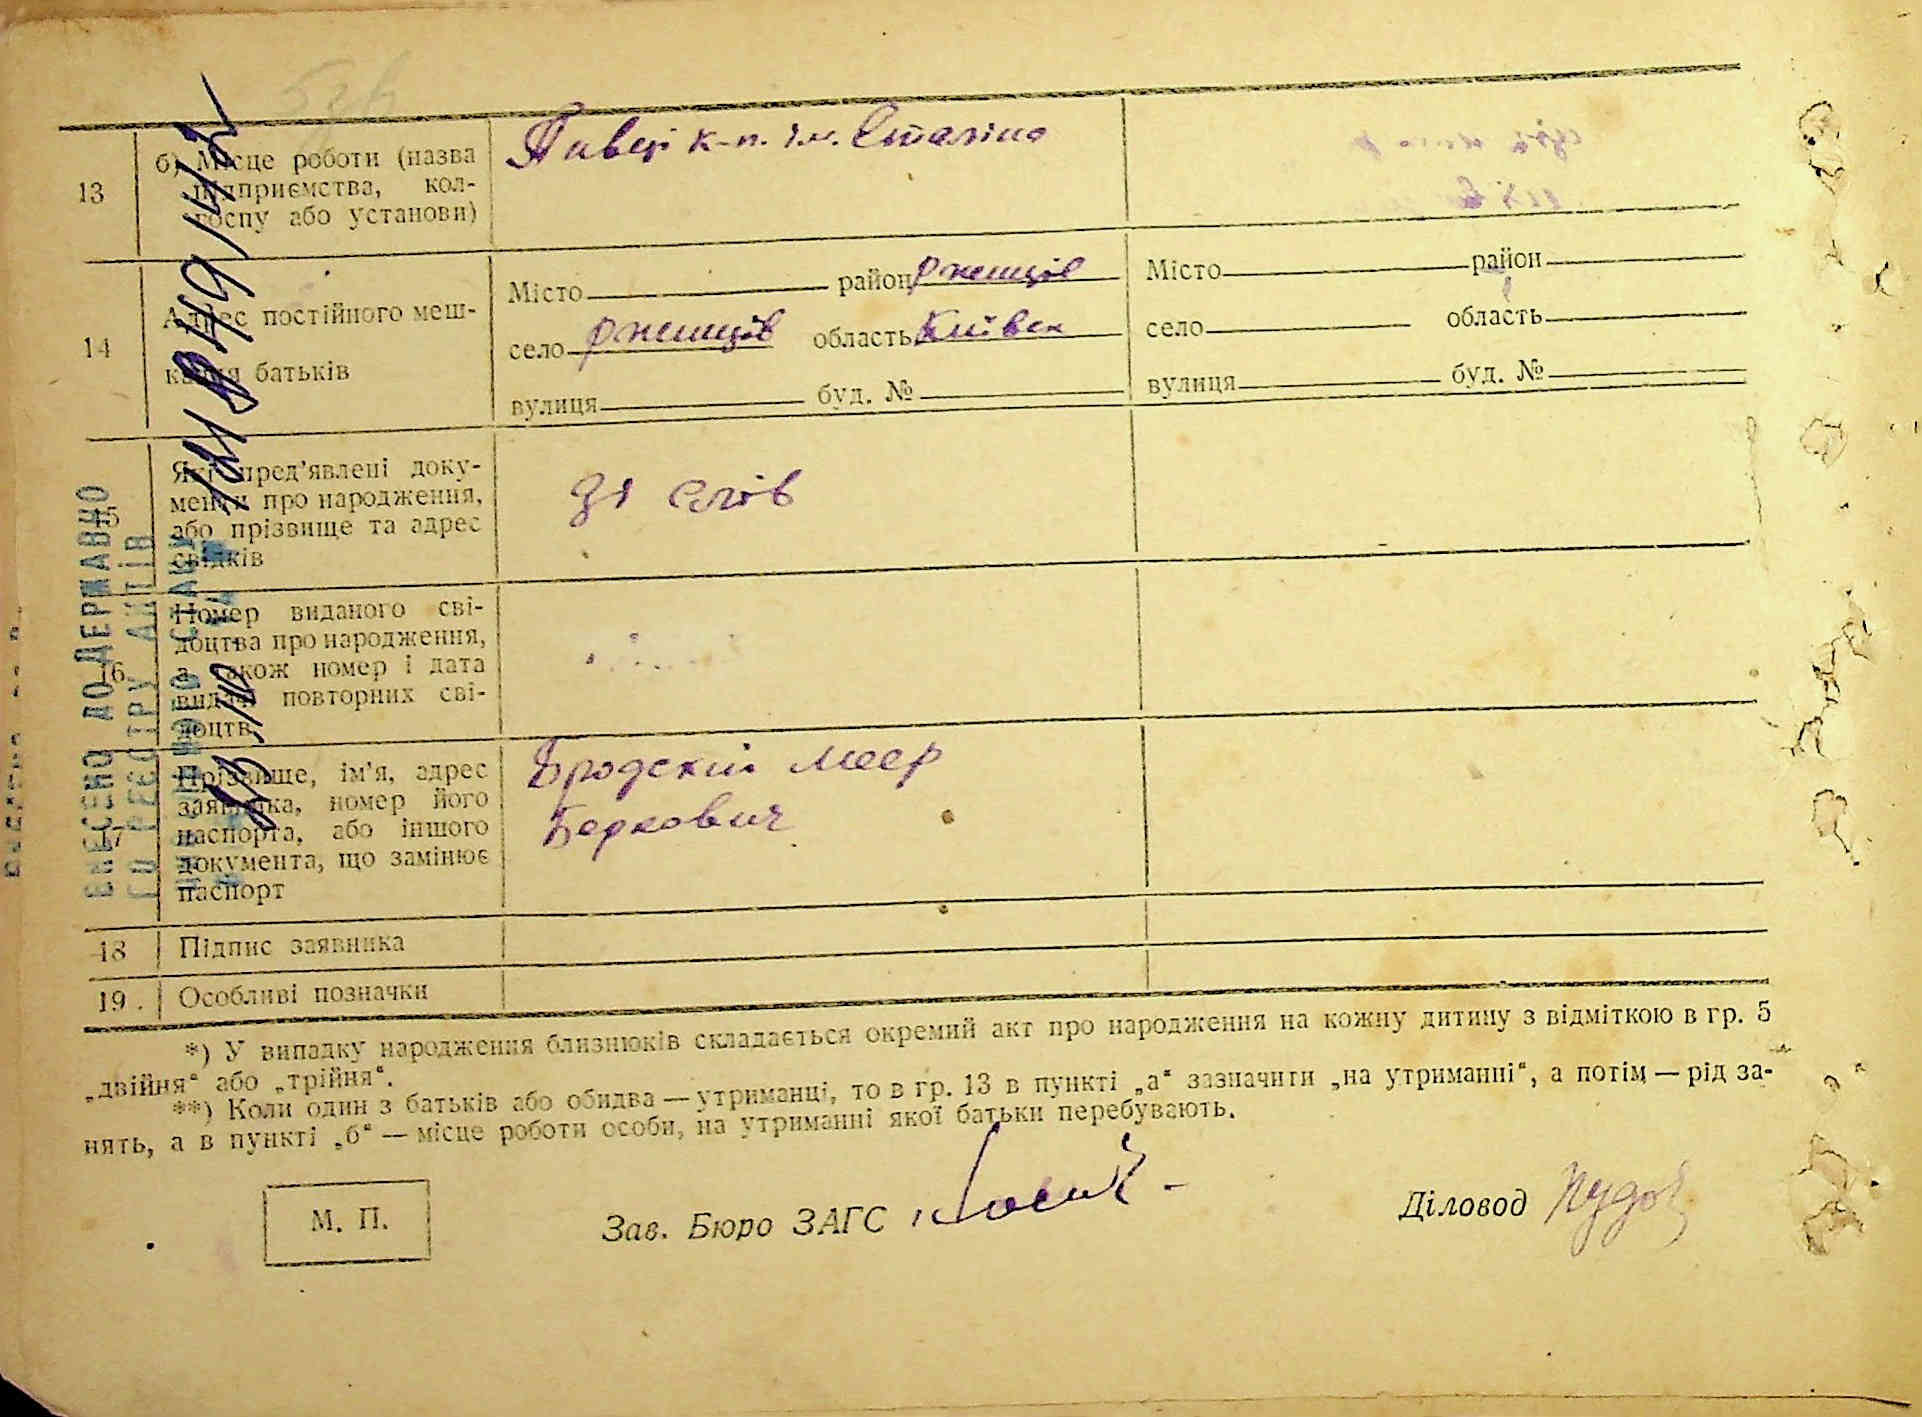 13
б) Місце роботи (назва
підприємства, кол-
госпу або установи)
к-п. ім. Сталіна
14
Адрес постійного меш-
кання батьків
Місто район Ржищів
село Ржищів область Київск
вулиця буд. №
Місто район
село область
вулиця буд. №
15
Які пред’явлені доку-
менти про народження,
або прізвище та адрес
свідків
Зі слів
16
Номер виданого сві-
доцтва про народження,
а також номер і дата
видачі повторних сві-
доцтв
17
Прізвище, ім’я, адрес
заявника, номер його
паспорта, або іншого
документа, що замінює
паспорт
Бродский Меер
Беркович
18 Підпис заявника
19. Особливі позначки
*) У випадку народження близнюків складається окремий акт про народження на кожну дитину з відміткою в гр. 5
„двійня“ або „трійня“.
**) Коли один з батьків або обидва — утриманці, то в гр. 13 в пункті „а“ зазначити „на утриманні“, а потім — рід за-
нять, а в пункті „б“ — місце роботи особи, на утриманні якої батьки перебувають.
М. П.
Зав. Бюро ЗАГС
Діловод
ВНЕСЕНО ДО ДЕРЖАВНО
ГО РЕЄСТРУ АКТІВ